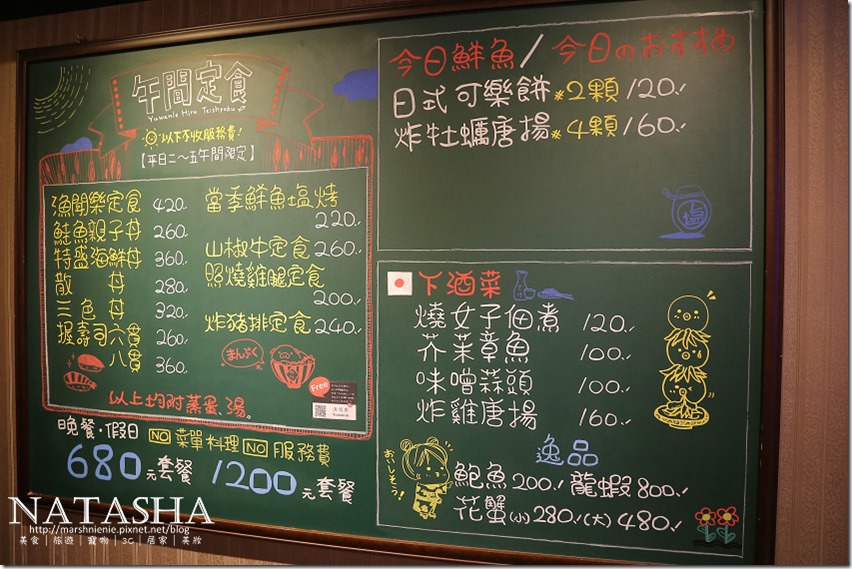 午間定食
Yuwenle Hiru Teishyoku
以下不收服務費!
【平日二~五午間限定】
漁聞樂定食 420.
鮭魚親子丼 260.
特盛海鮮丼 360.
散 丼 280.
三色丼 320.
握壽司六貫 260.
八貫 360.
當季鮮魚塩烤
220.
山椒牛定食 260.
照燒雞腿定食
200.
炸豬排定食 240.
まんぷく
Free
以上均附蒸蛋、湯。
晚餐·假日 NO 菜單料理 NO 服務費
680元套餐 1200元套餐
今日鮮魚/今日のおすすめ
日式可樂餅※2顆 120.
炸牡蠣唐揚※4顆 160.
塩
下酒菜
燒女子佃煮 120.
芥菜章魚 100.
味噌蒜頭 100.
炸雞唐揚 160.
逸品
おいしそう!
鮑魚 200. 龍蝦 800.
花蟹(小) 280.(大) 480.
NATASHA
http://marshnienie.pixnet.net/blog
美食│旅遊│寵物│3C│居家│美妝